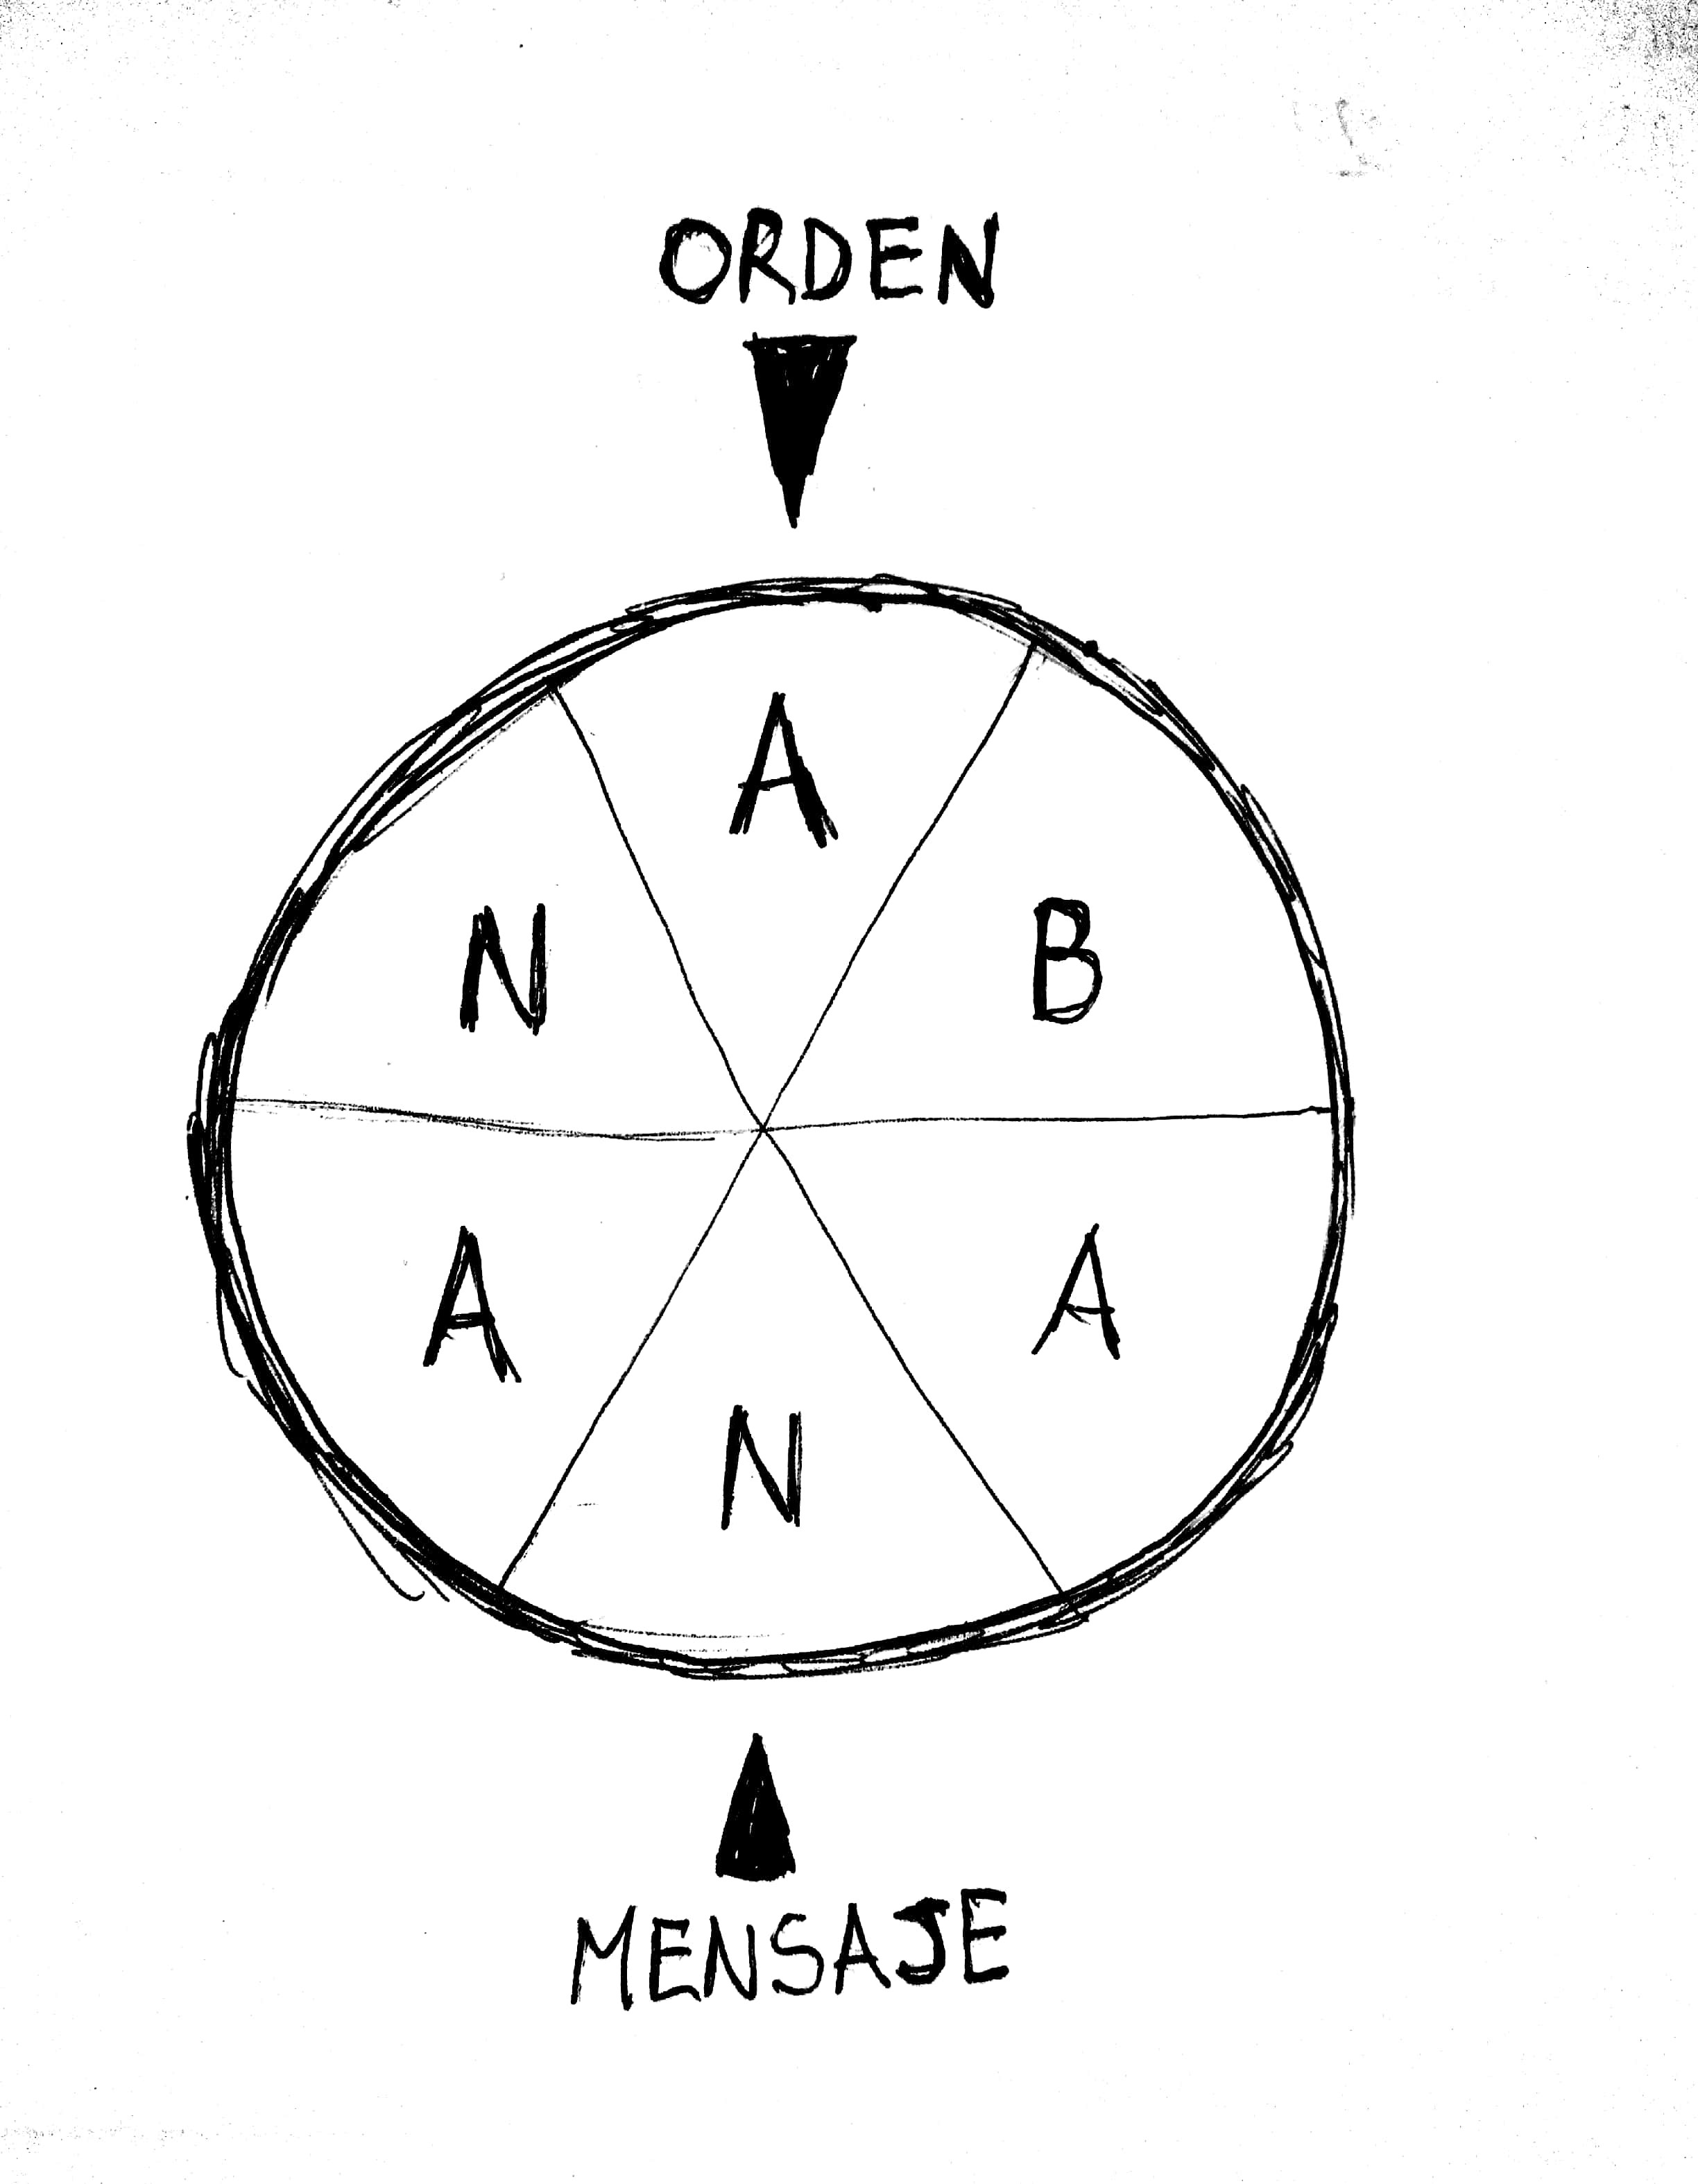 ORDEN
A
N B
A A
N
MENSAJE